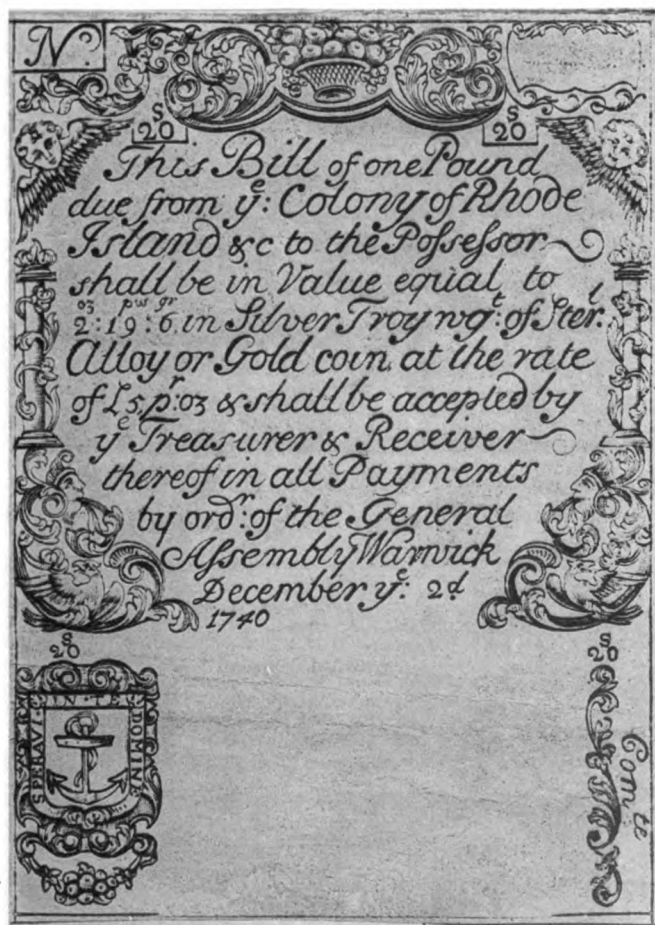 N.º
20ˢ 20ˢ
This Bill of one Pound
due from yᵉ: Colony of Rhode
Island &c to the Poſseſsor
shall be in Value equal to
2ᵒᶻ:19ᵖʷᵗ:6ᵍʳ in Silver Troy wgᵗ: of Sterˡ.
Alloy or Gold coin at the rate
of £5 pʳ: oz & shall be accepted by
yᵉ Treasurer & Receiver
thereof in all Payments
by ordʳ: of the General
Aſsembly Warwick
December yᵉ: 2d
1740
20ˢ 20ˢ
SPERAVI · IN · TE · DOMINE
Com.te